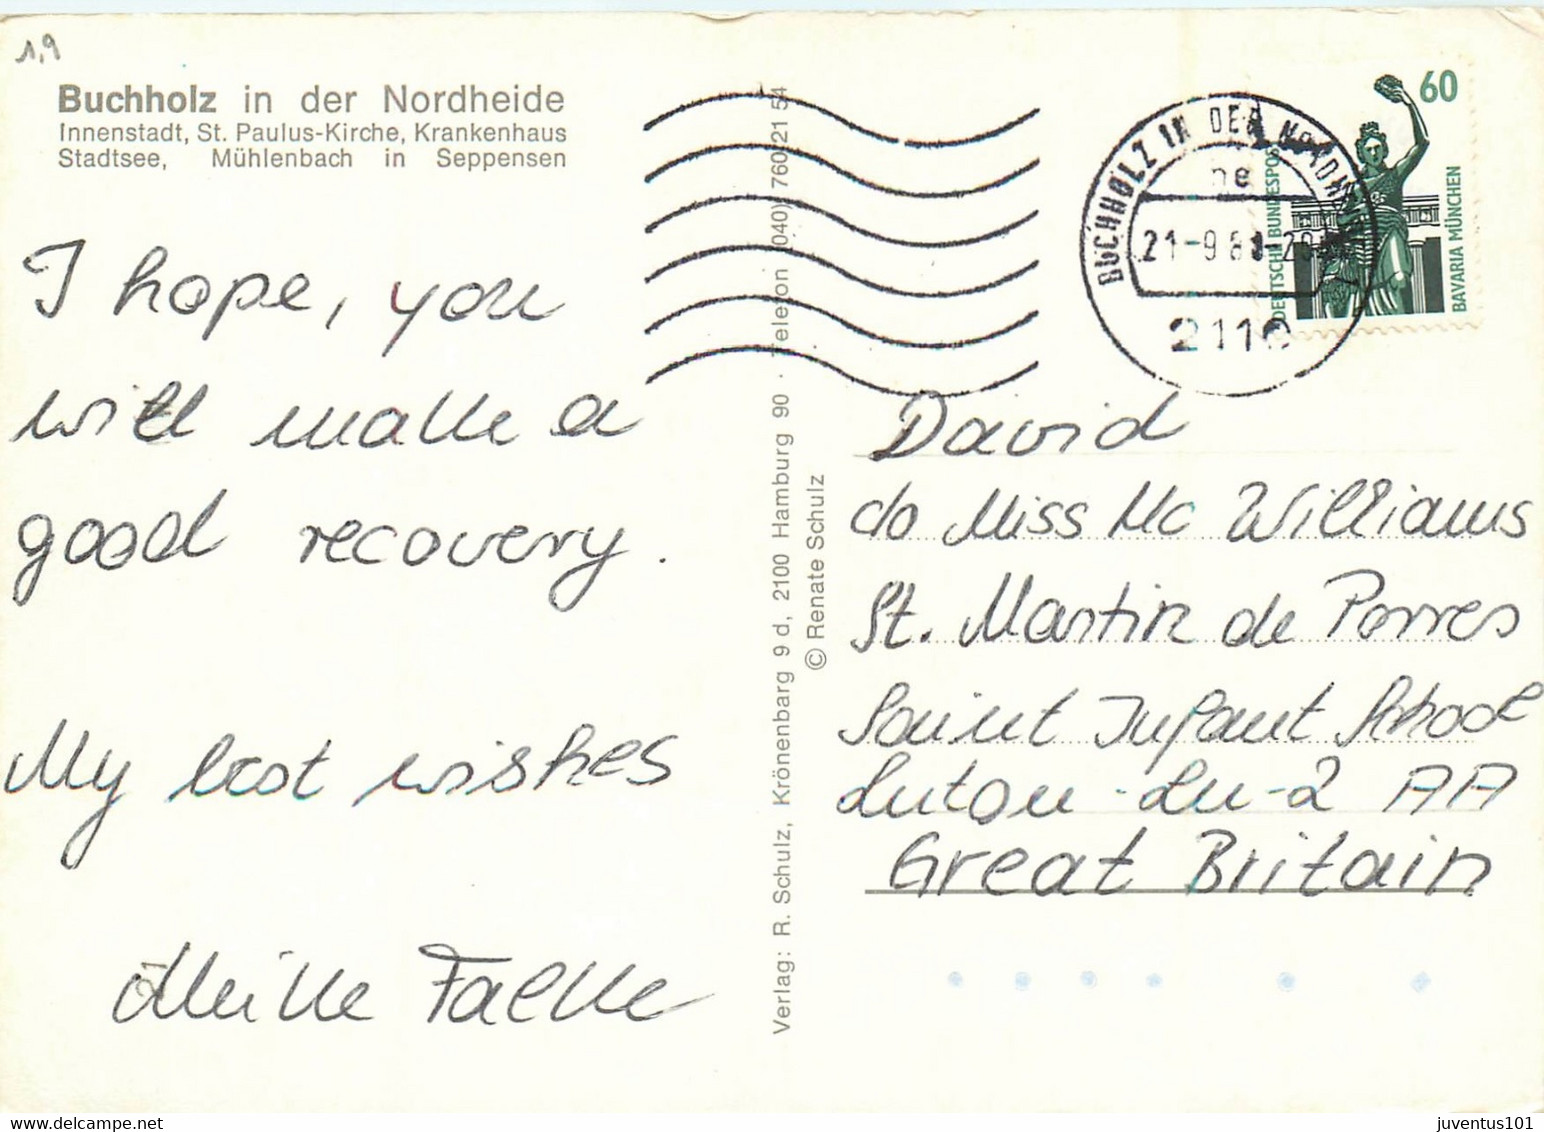 1,9
Buchholz in der Nordheide
Innenstadt, St. Paulus-Kirche, Krankenhaus
Stadtsee, Mühlenbach in Seppensen
I hope, you
will make a
good recovery.
My best wishes
Falke
Verlag: R. Schulz, Krönenbarg 9 d, 2100 Hamburg 90 · Telefon (040) 760 21 54
© Renate Schulz
BUCHHOLZ IN DER NORDHEIDE
21-9.8
2110
60
DEUTSCHE BUNDESPOST
BAVARIA MÜNCHEN
David
c/o Miss Mc Williams
St. Martin de Porres
Saint Infant School
Luton - Lu-2 AA
Great Britain
www.delcampe.net
juventus101